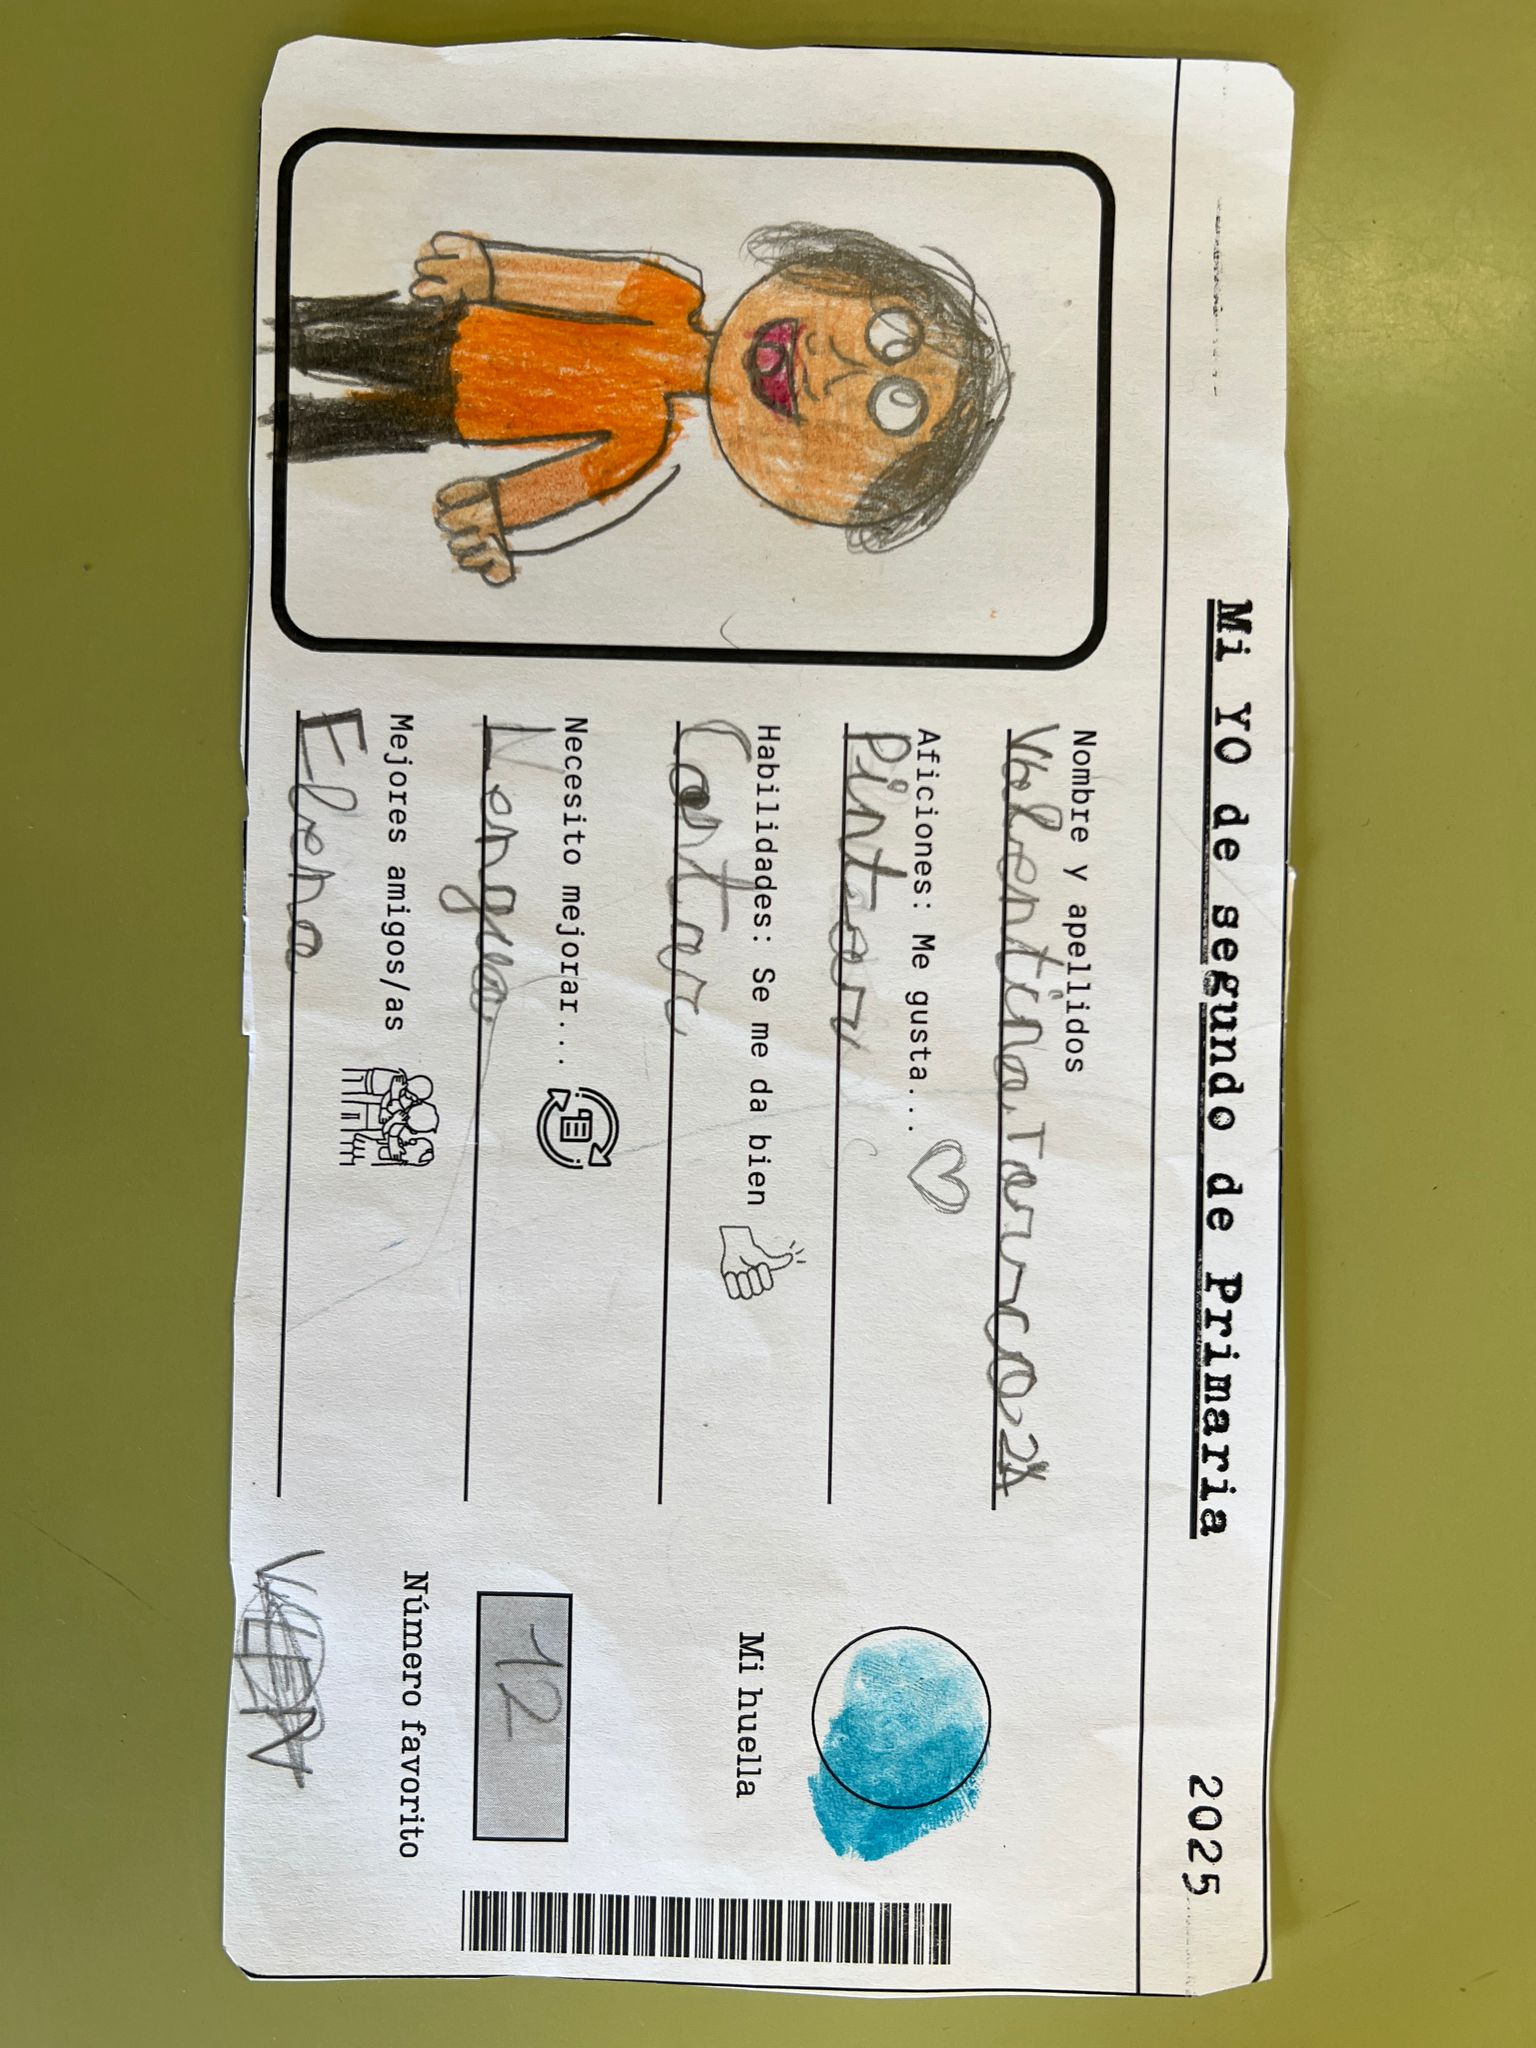 Mi YO de segundo de Primaria
2025
Nombre y apellidos
Valentina Tarsco 2A
Aficiones: Me gusta...
Pintar
Habilidades: Se me da bien
Cortar
Necesito mejorar...
Lengua
Mejores amigos/as
Elena
Mi huella
12
Número favorito